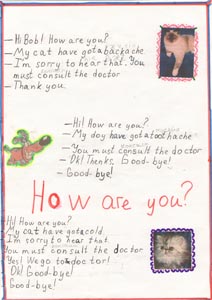 – Hi Bob! How are you?
– My cat have got a backache
– I'm sorry to hear that. You
must consult the doctor
– Thank you.
– Hi! How are you?
– My dog have got a toothache
– You must consult the doctor
– Ok! Thanks. Good-bye!
– Good-bye!
How are you?
Hi! How are you?
My cat have got a cold.
I'm sorry to hear that.
You must consult the doctor
Yes! We go to doctor!
Ok! Good-bye!
Good-bye!